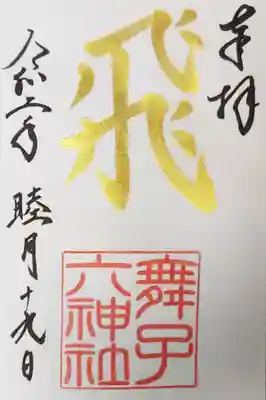 奉拝
飛
舞子
六神社
令和六年 睦月十九日